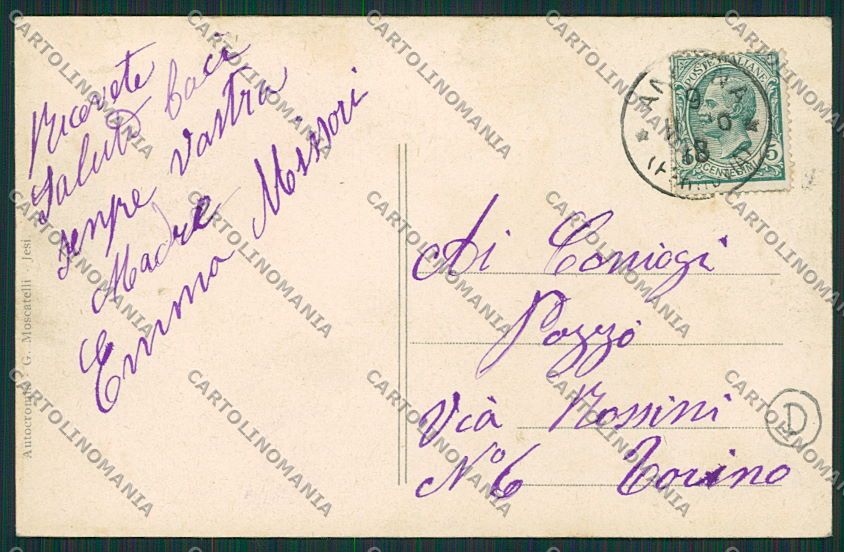 Ricevete
Saluti baci
senpre vostra
Madre
Emma Missori
Autocromia G. Moscatelli - Jesi
POSTE ITALIANE
5
CENTESIMI
9
18
Ai Coniogi
Pozzo
Via Rossini
N° 6 Torino
D
CARTOLINOMANIA